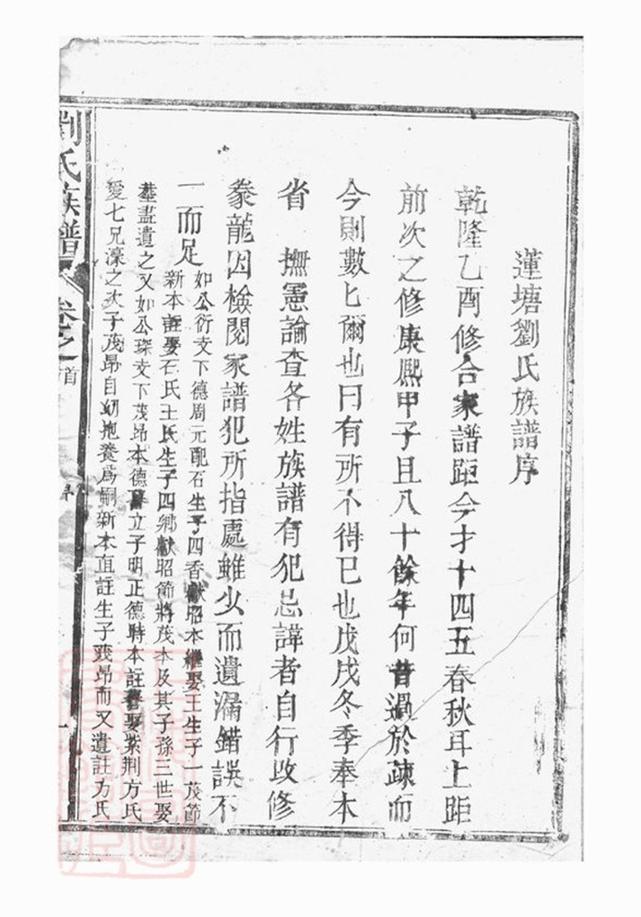 蓮塘劉氏族譜序
乾隆乙酉修合家譜距今才十四五春秋耳上距
前次之修康熙甲子且八十餘年何昔過於疎而
今則數匕爾也曰有所不得已也戊戌冬季奉本
省 撫憲諭查各姓族譜有犯忌諱者自行改修
彖龍因檢閱家譜犯所指處雖少而遺漏錯誤不
一而足
如公衍支下德周元配石生子四香獻昭本繼娶王生子一茂節
新本註娶石氏王氏生子四鄉獻昭節將茂本及其子孫三世娶
塟盡遺之又如公琛支下茂昂本德立子明正德時本註娶紫荆方氏
愛七兄濠之次子茂昂自幼抱養爲嗣新本直註生子茂昂而又遺註方氏
劉氏族譜
卷之首